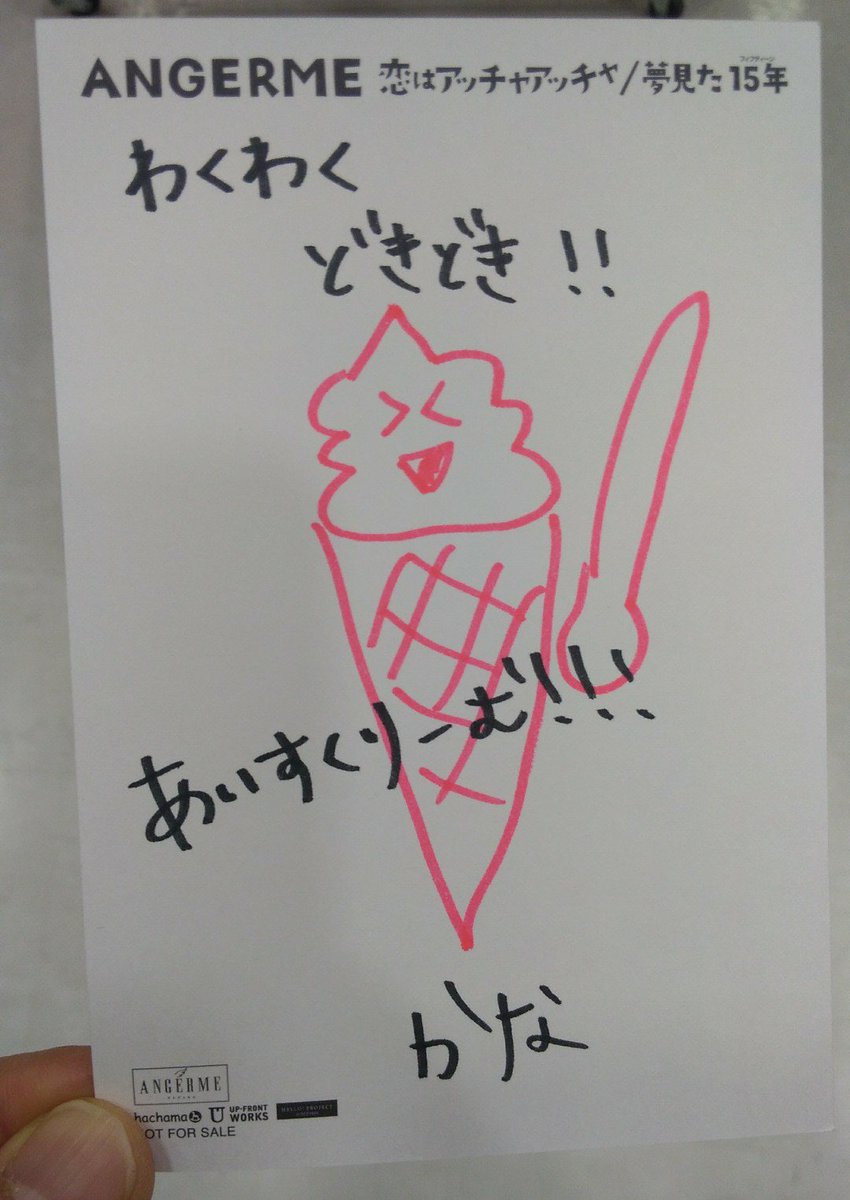 ANGERME 恋はアッチャアッチャ/夢見た15年
フィフティーン
わくわく
どきどき!!
あいすくりーむ!!!
かな
ANGERME
hachama
UP-FRONT WORKS
HELLO! PROJECT
NOT FOR SALE